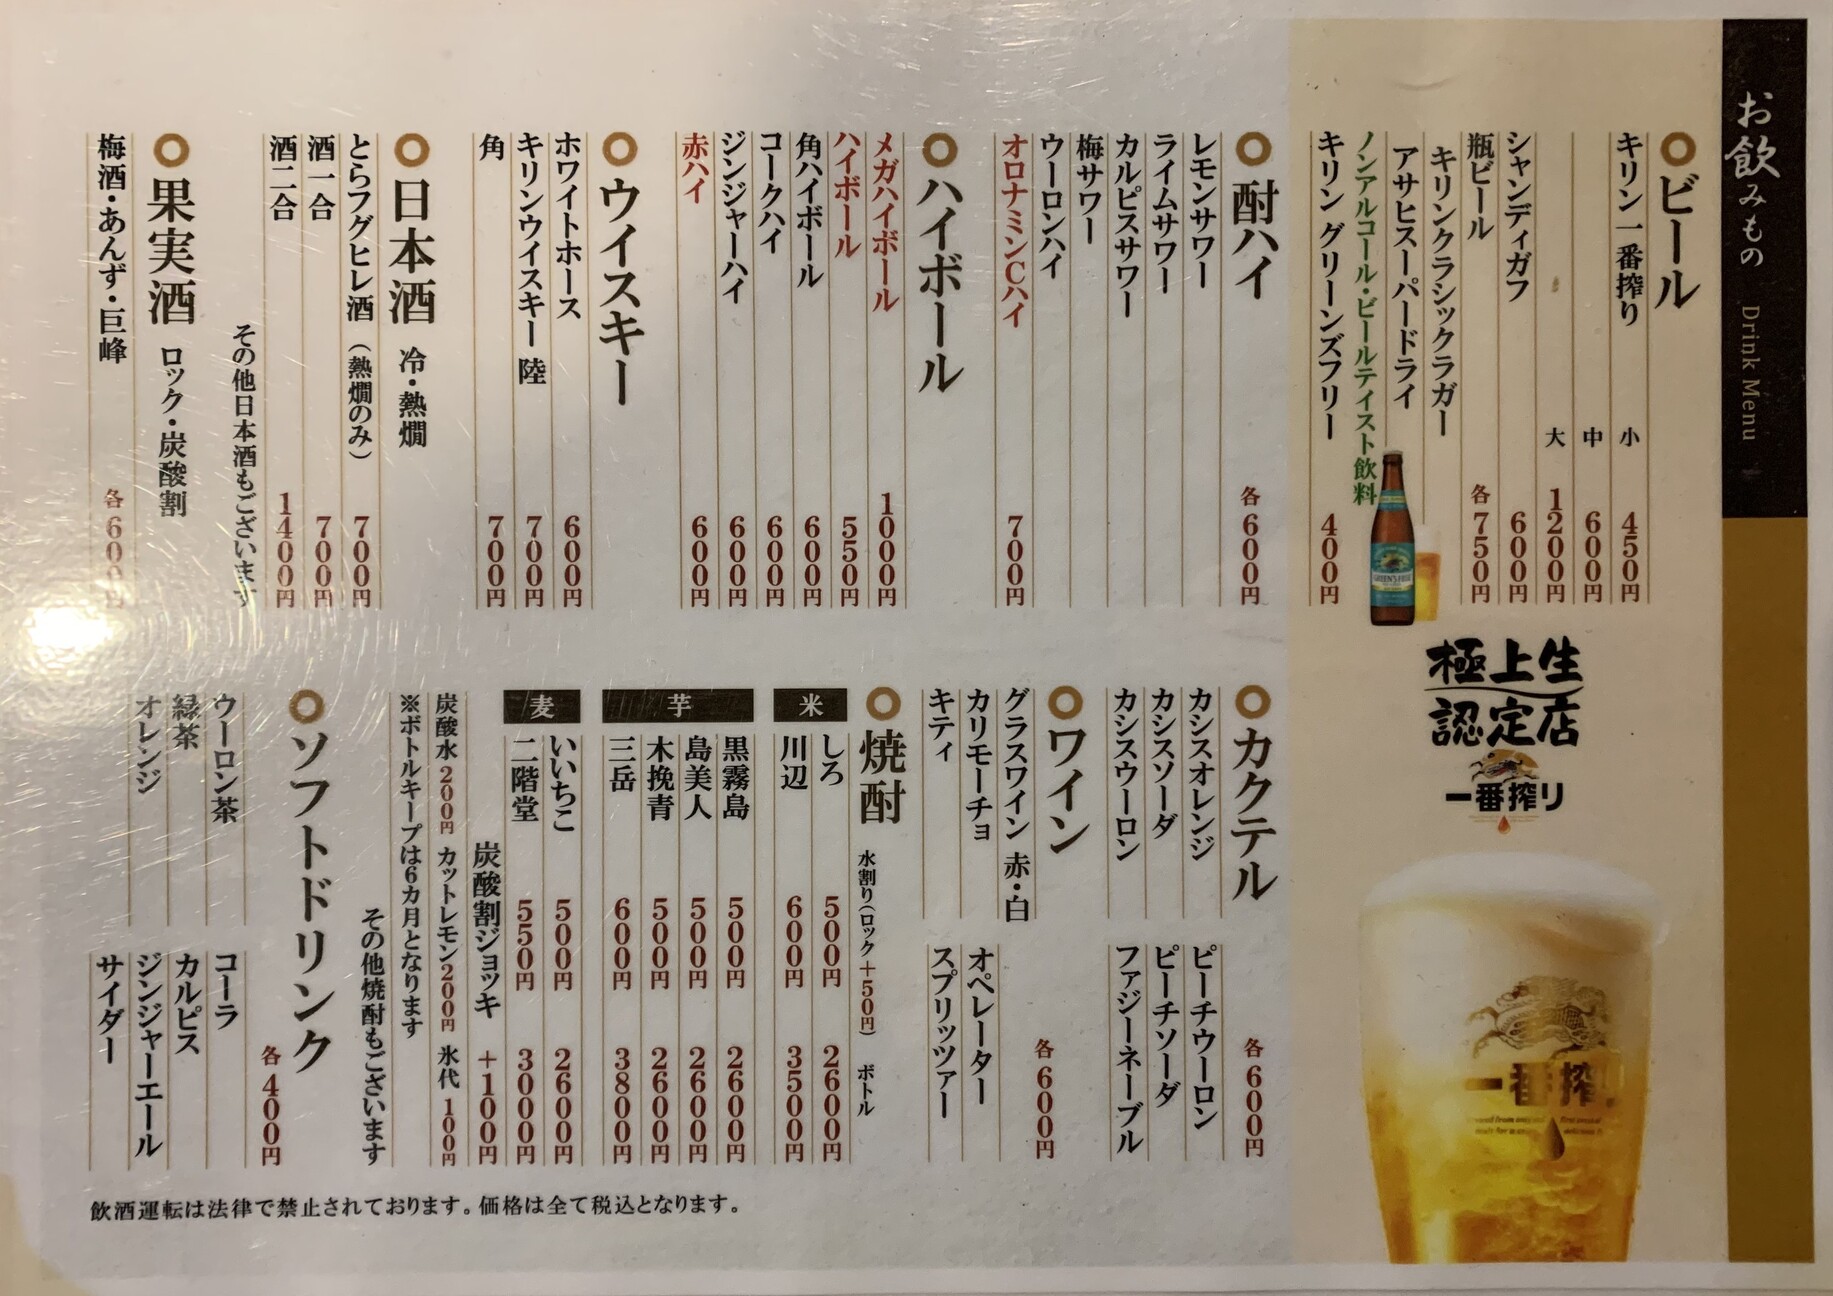 お飲みもの Drink Menu
ビール
キリン一番搾り 小 450円
中 600円
大 1200円
シャンディガフ 600円
瓶ビール 各750円
キリンクラシックラガー
アサヒスーパードライ
ノンアルコール・ビールテイスト飲料
キリン グリーンズフリー 400円
GREEN'S FREE
極上生
認定店
一番搾り
一番搾り
酎ハイ 各600円
レモンサワー
ライムサワー
カルピスサワー
梅サワー
ウーロンハイ
オロナミンCハイ 700円
ハイボール
メガハイボール 1000円
ハイボール 550円
角ハイボール 600円
コークハイ 600円
ジンジャーハイ 600円
赤ハイ 600円
ウイスキー
ホワイトホース 600円
キリンウイスキー 陸 700円
角 700円
日本酒 冷・熱燗
とらフグヒレ酒(熱燗のみ) 700円
酒一合 700円
酒二合 1400円
その他日本酒もございます
果実酒 ロック・炭酸割
梅酒・あんず・巨峰 各600円
カクテル 各600円
カシスオレンジ ピーチウーロン
カシスソーダ ピーチソーダ
カシスウーロン ファジーネーブル
ワイン 各600円
グラスワイン 赤・白
カリモーチョ オペレーター
キティ スプリッツァー
焼酎 水割り(ロック+50円) ボトル
米
しろ 500円 2600円
川辺 600円 3500円
芋
黒霧島 500円 2600円
島美人 500円 2600円
木挽青 500円 2600円
三岳 600円 3800円
麦
いいちこ 500円 2600円
二階堂 550円 3000円
炭酸割ジョッキ +100円
炭酸水 200円 カットレモン200円 氷代 100円
※ボトルキープは6カ月となります
その他焼酎もございます
ソフトドリンク 各400円
ウーロン茶 コーラ
緑茶 カルピス
オレンジ ジンジャーエール
サイダー
飲酒運転は法律で禁止されております。価格は全て税込となります。